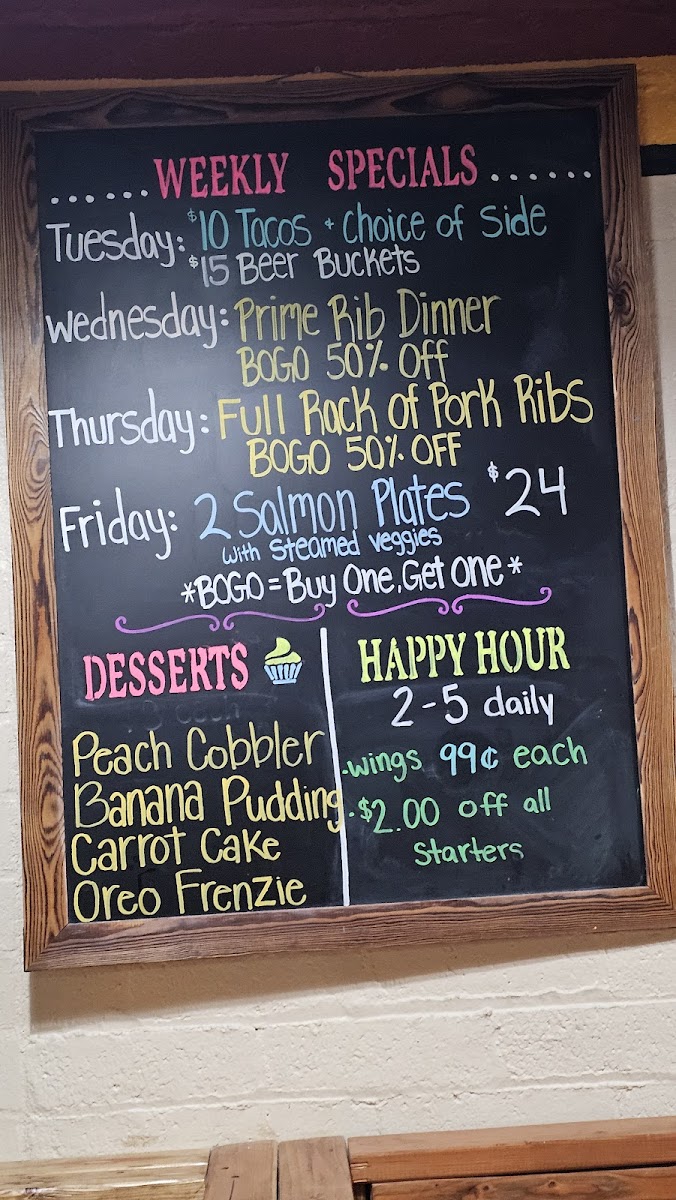 ......WEEKLY SPECIALS......
Tuesday: $10 Tacos + Choice of Side
$15 Beer Buckets
Wednesday: Prime Rib Dinner
BOGO 50% Off
Thursday: Full Rack of Pork Ribs
BOGO 50% OFF
Friday: 2 Salmon Plates $24
with steamed veggies
*BOGO = Buy One, Get One*
DESSERTS
Peach Cobbler
Banana Pudding
Carrot Cake
Oreo Frenzie
HAPPY HOUR
2-5 daily
·wings 99¢ each
·$2.00 off all
Starters